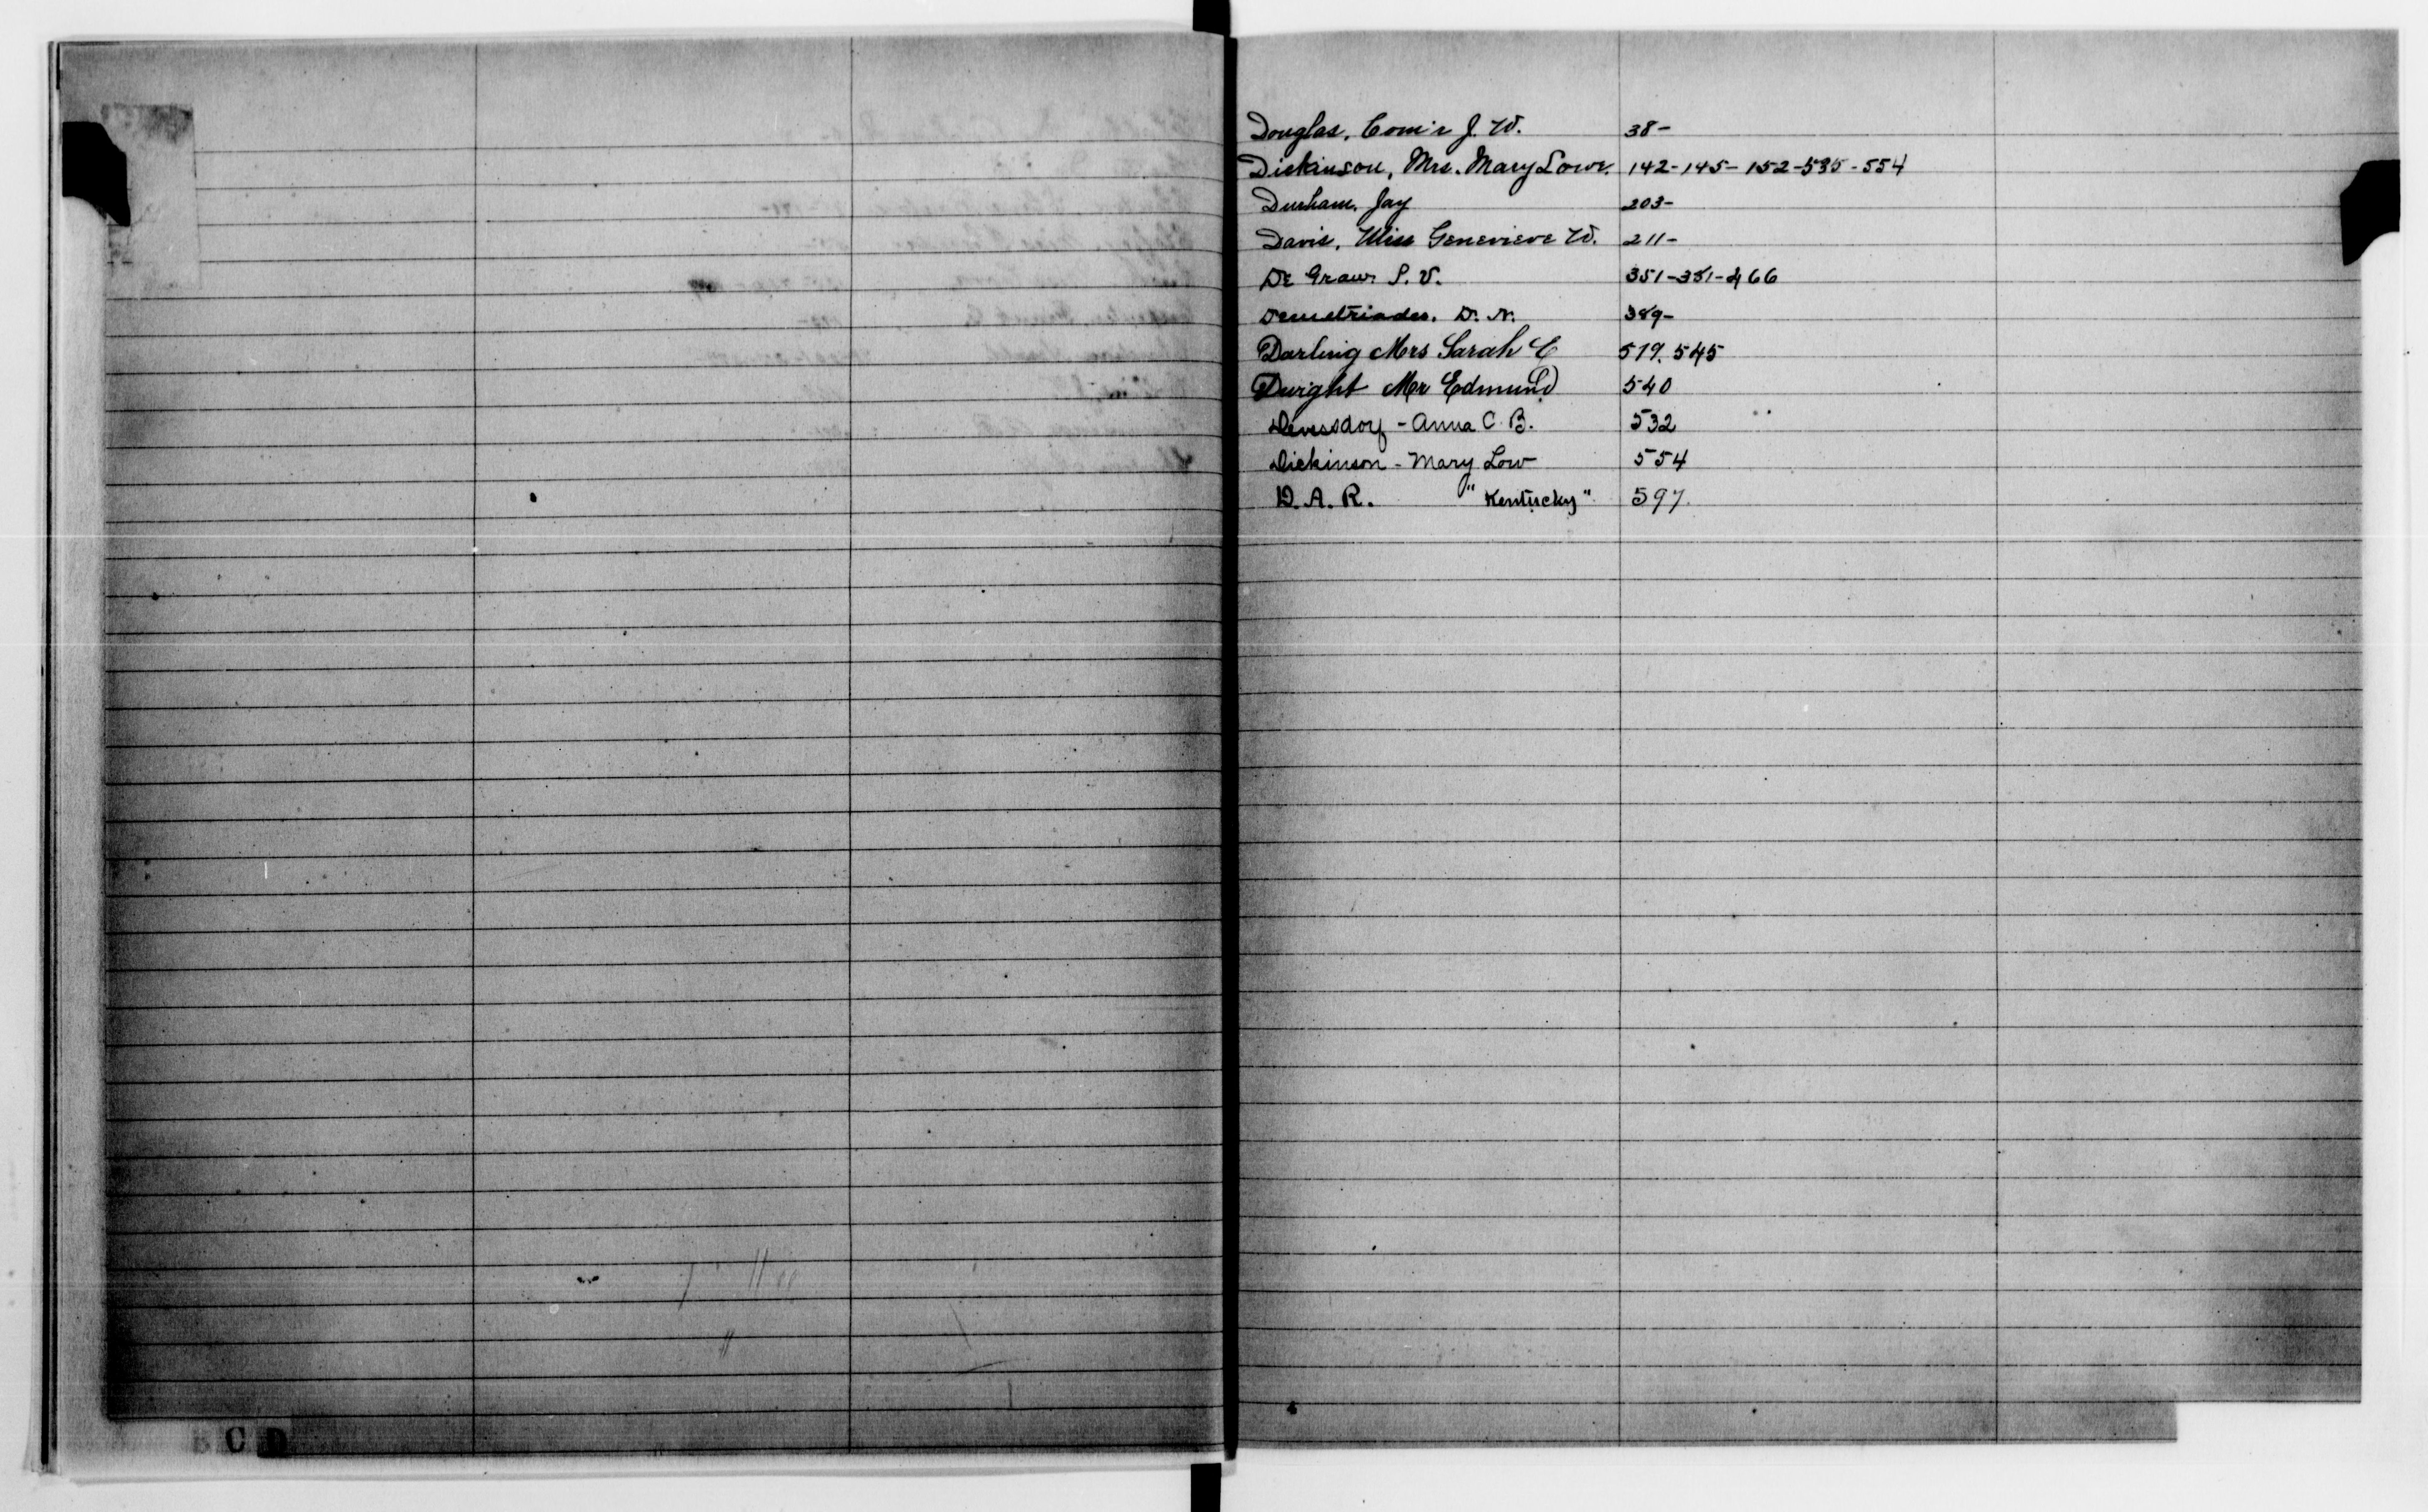 Douglas, Com'r J. W. 38-
Dickinson, Mrs. Mary Lowe. 142-145-152-535-554
Durham, Jay 203-
Davis, Miss Genevieve W. 211-
De Graw. P. V. 351-381-466
Demetriades. D. N. 389-
Darling Mrs Sarah E 519. 545
Dwight Mr Edmund 540
- Anna C. B. 532
Dickinson - Mary Low 554
D. A. R. "Kentucky" 597.
C D